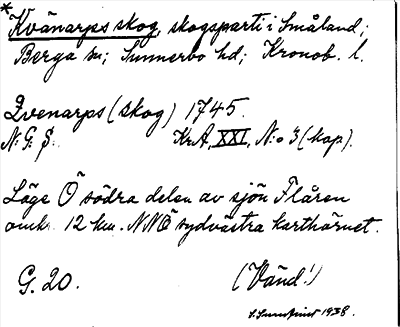 *
Kvänarps skog, skogsparti i Småland;
Berga sn; Sunnerbo hd; Kronob. l.
Qvenarps (skog) 1745.
N: G. §. KrA, XXI, N:o 3 (kop).
Läge Ö södra delen av sjön Flåren
omkr. 12 km. NNÖ sydvästra karthörnet.
G. 20. (Vänd!)
1938.